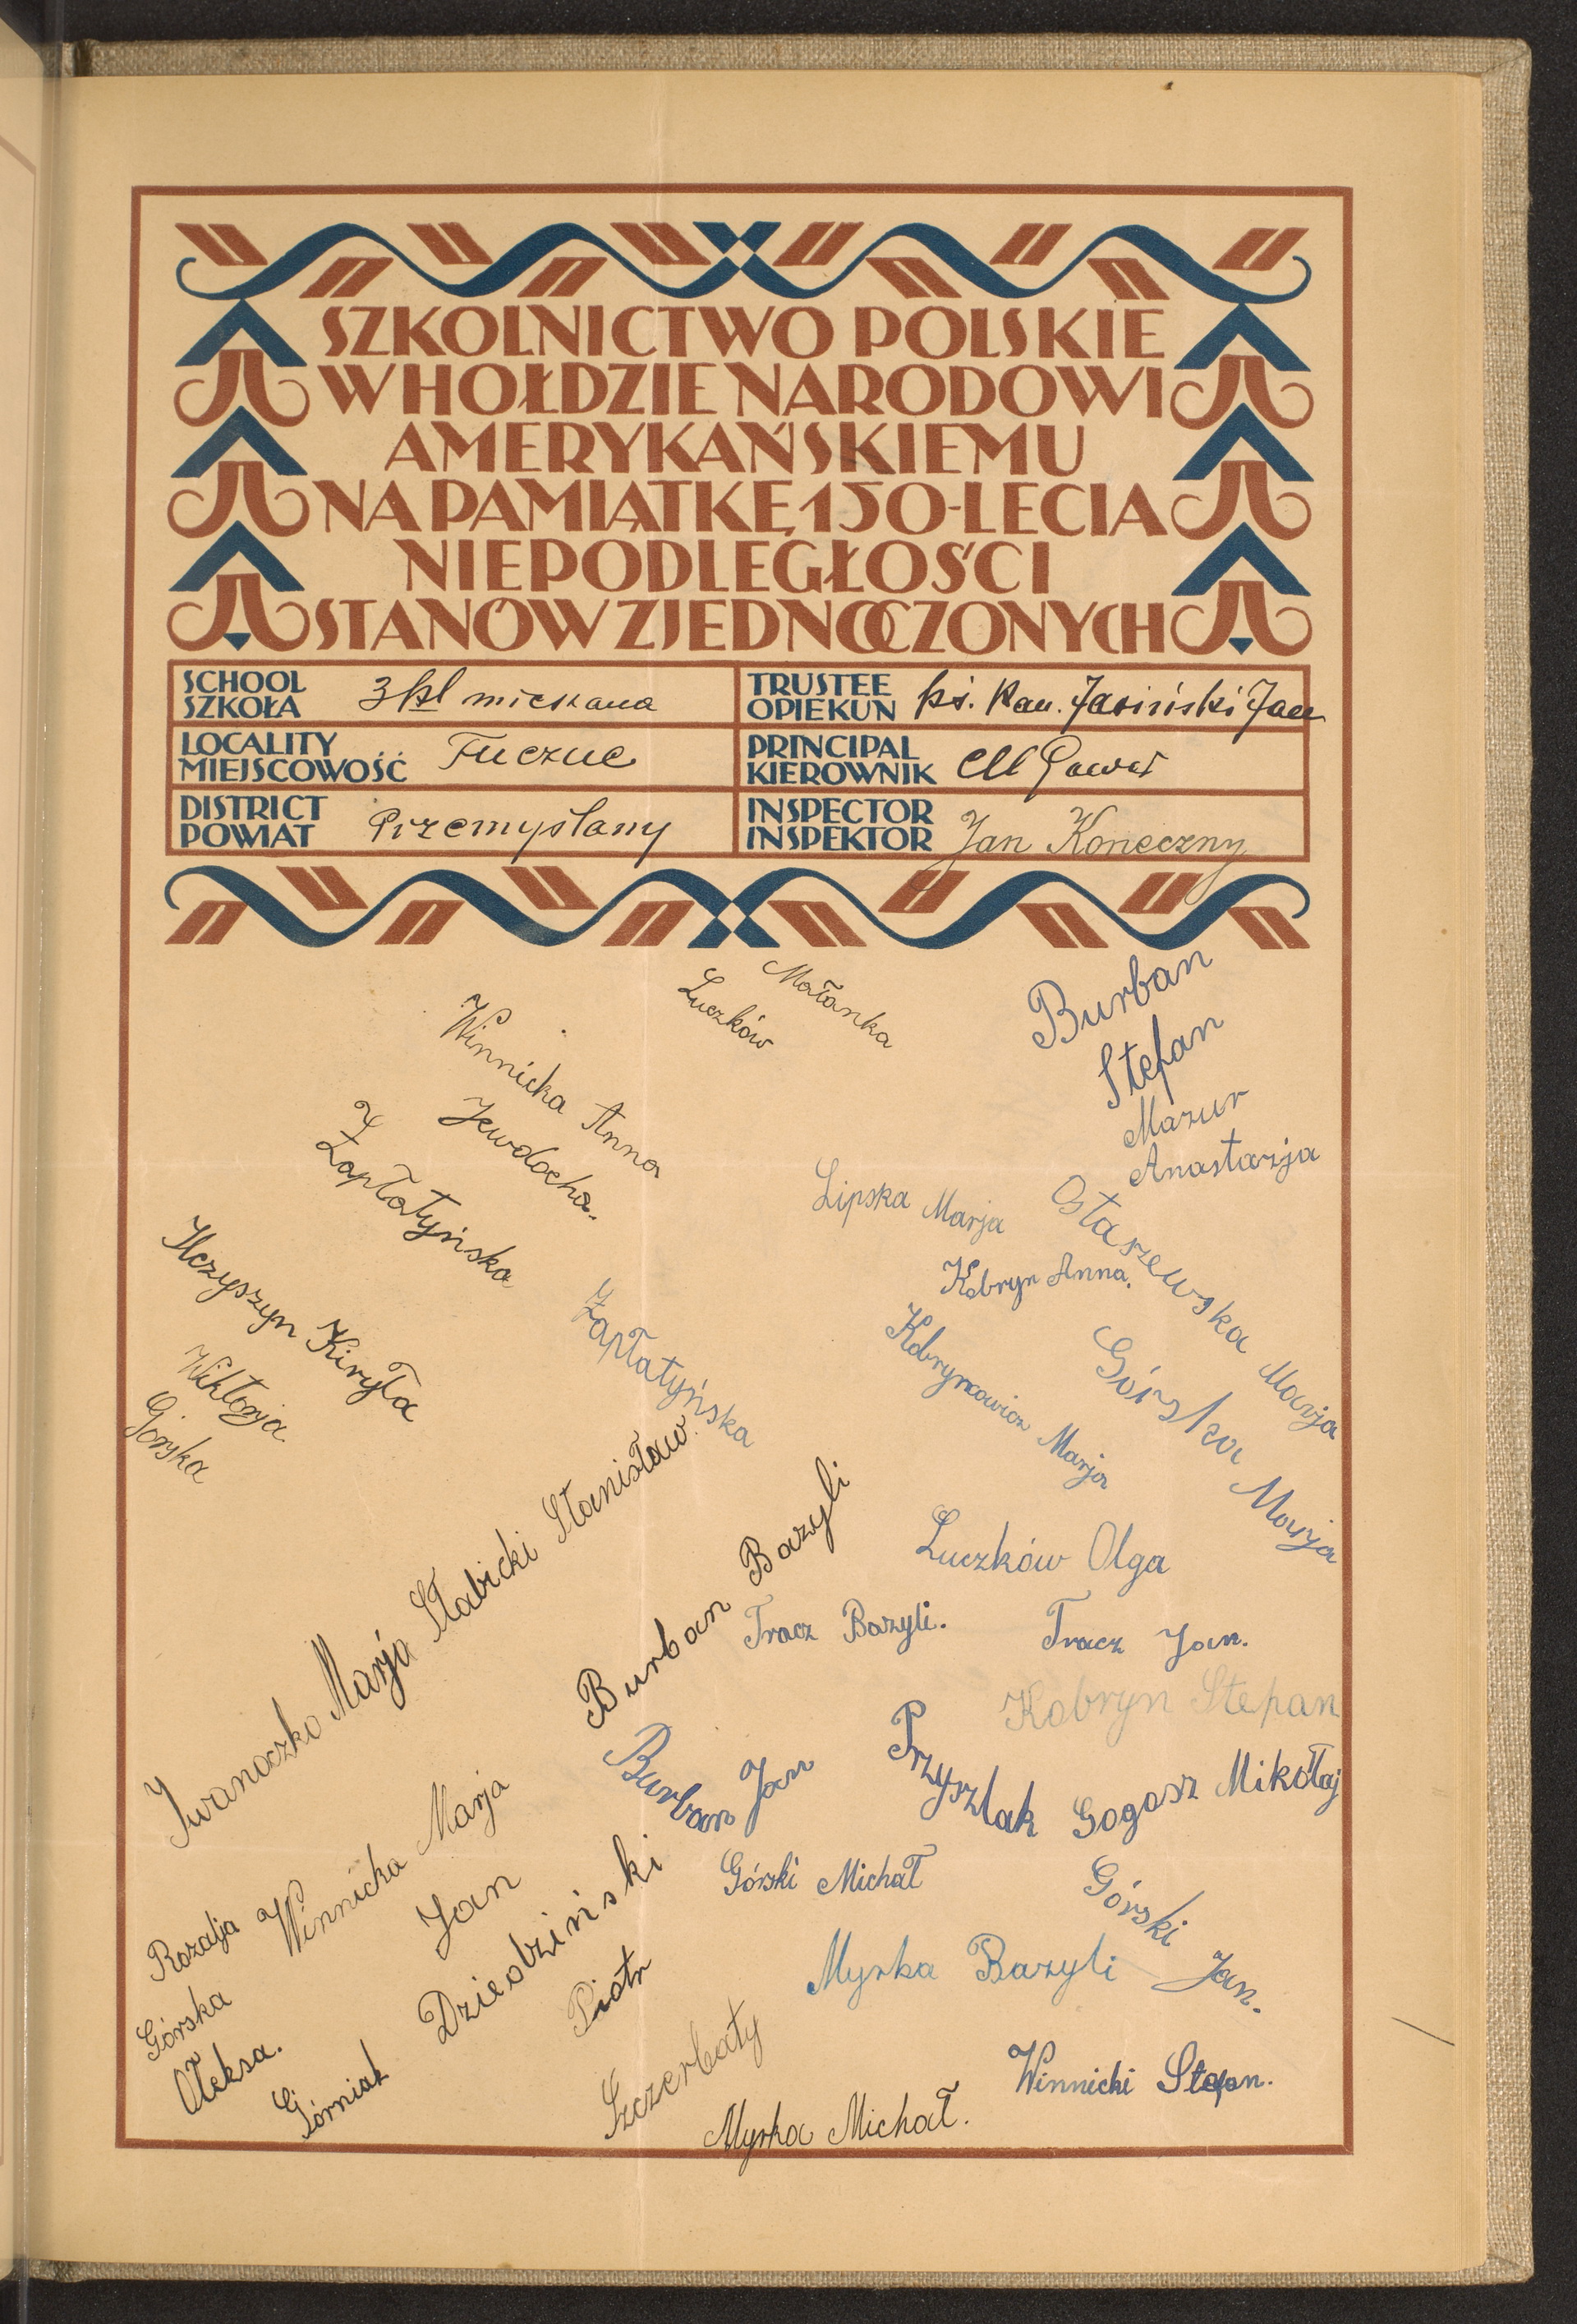 SZKOLNICTWO POLSKIE
W HOŁDZIE NARODOWI
AMERYKAŃSKIEMU
NA PAMIĄTKĘ 150-LECIA
NIEPODLEGŁOŚCI
STANÓW ZJEDNOCZONYCH
SCHOOL
SZKOŁA
3 kl mieszana
TRUSTEE
OPIEKUN
ks. Kan. Jasiński Jan
LOCALITY
MIEJSCOWOŚĆ
Tuczne
PRINCIPAL
KIEROWNIK
DISTRICT
POWIAT
Przemyslany
INSPECTOR
INSPEKTOR
Jan Koneczny
Małanka
Luczków
Burban
Stefan
Winnicka Anna
Jewdocha.
Zapłatyńska
Mazur
Anastazja
Lipska Marja
Ostaszewska Marja
Kobryn Anna.
Ilczyszyn Kiryła
Wiktorja
Górska
Zapłatyńska
Kobrynowicz Marja
Górska Marja
Iwanoczko Marja
Słabicki Stanisław.
Burban Bazyli
Luczków Olga
Tracz Bazyli.
Tracz Jan.
Kobryn Stepan
Burban Jan
Przyszlak
Gogosz Mikołaj
Winnicka Marja
Jan
Dziedziński
Górski Michał
Górski Jan.
Rozalja
Górska
Myrka Bazyli
Piotr
Szczerbaty
Ołeksa.
Górniak
Winnicki Stefan.
Myrka Michał.